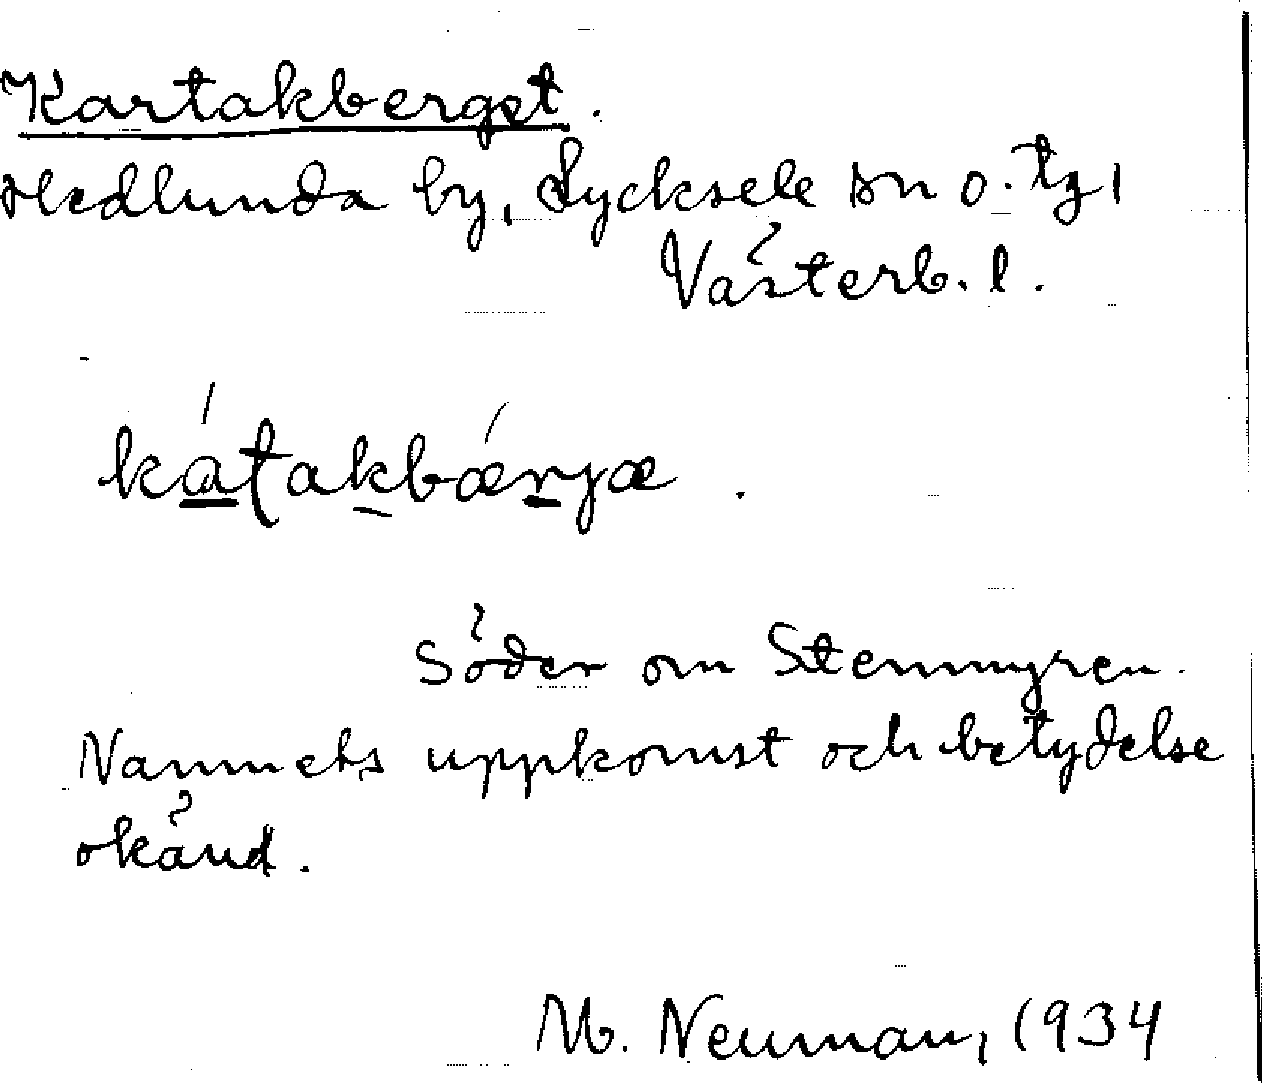 Kartakberget.
Hedlunda by, Lycksele sn o. tg,
Västerb. l.
kátakbǽrjæ.
Söder om Stenmyren.
Namnets uppkomst och betydelse
okänd.
M. Neuman, 1934